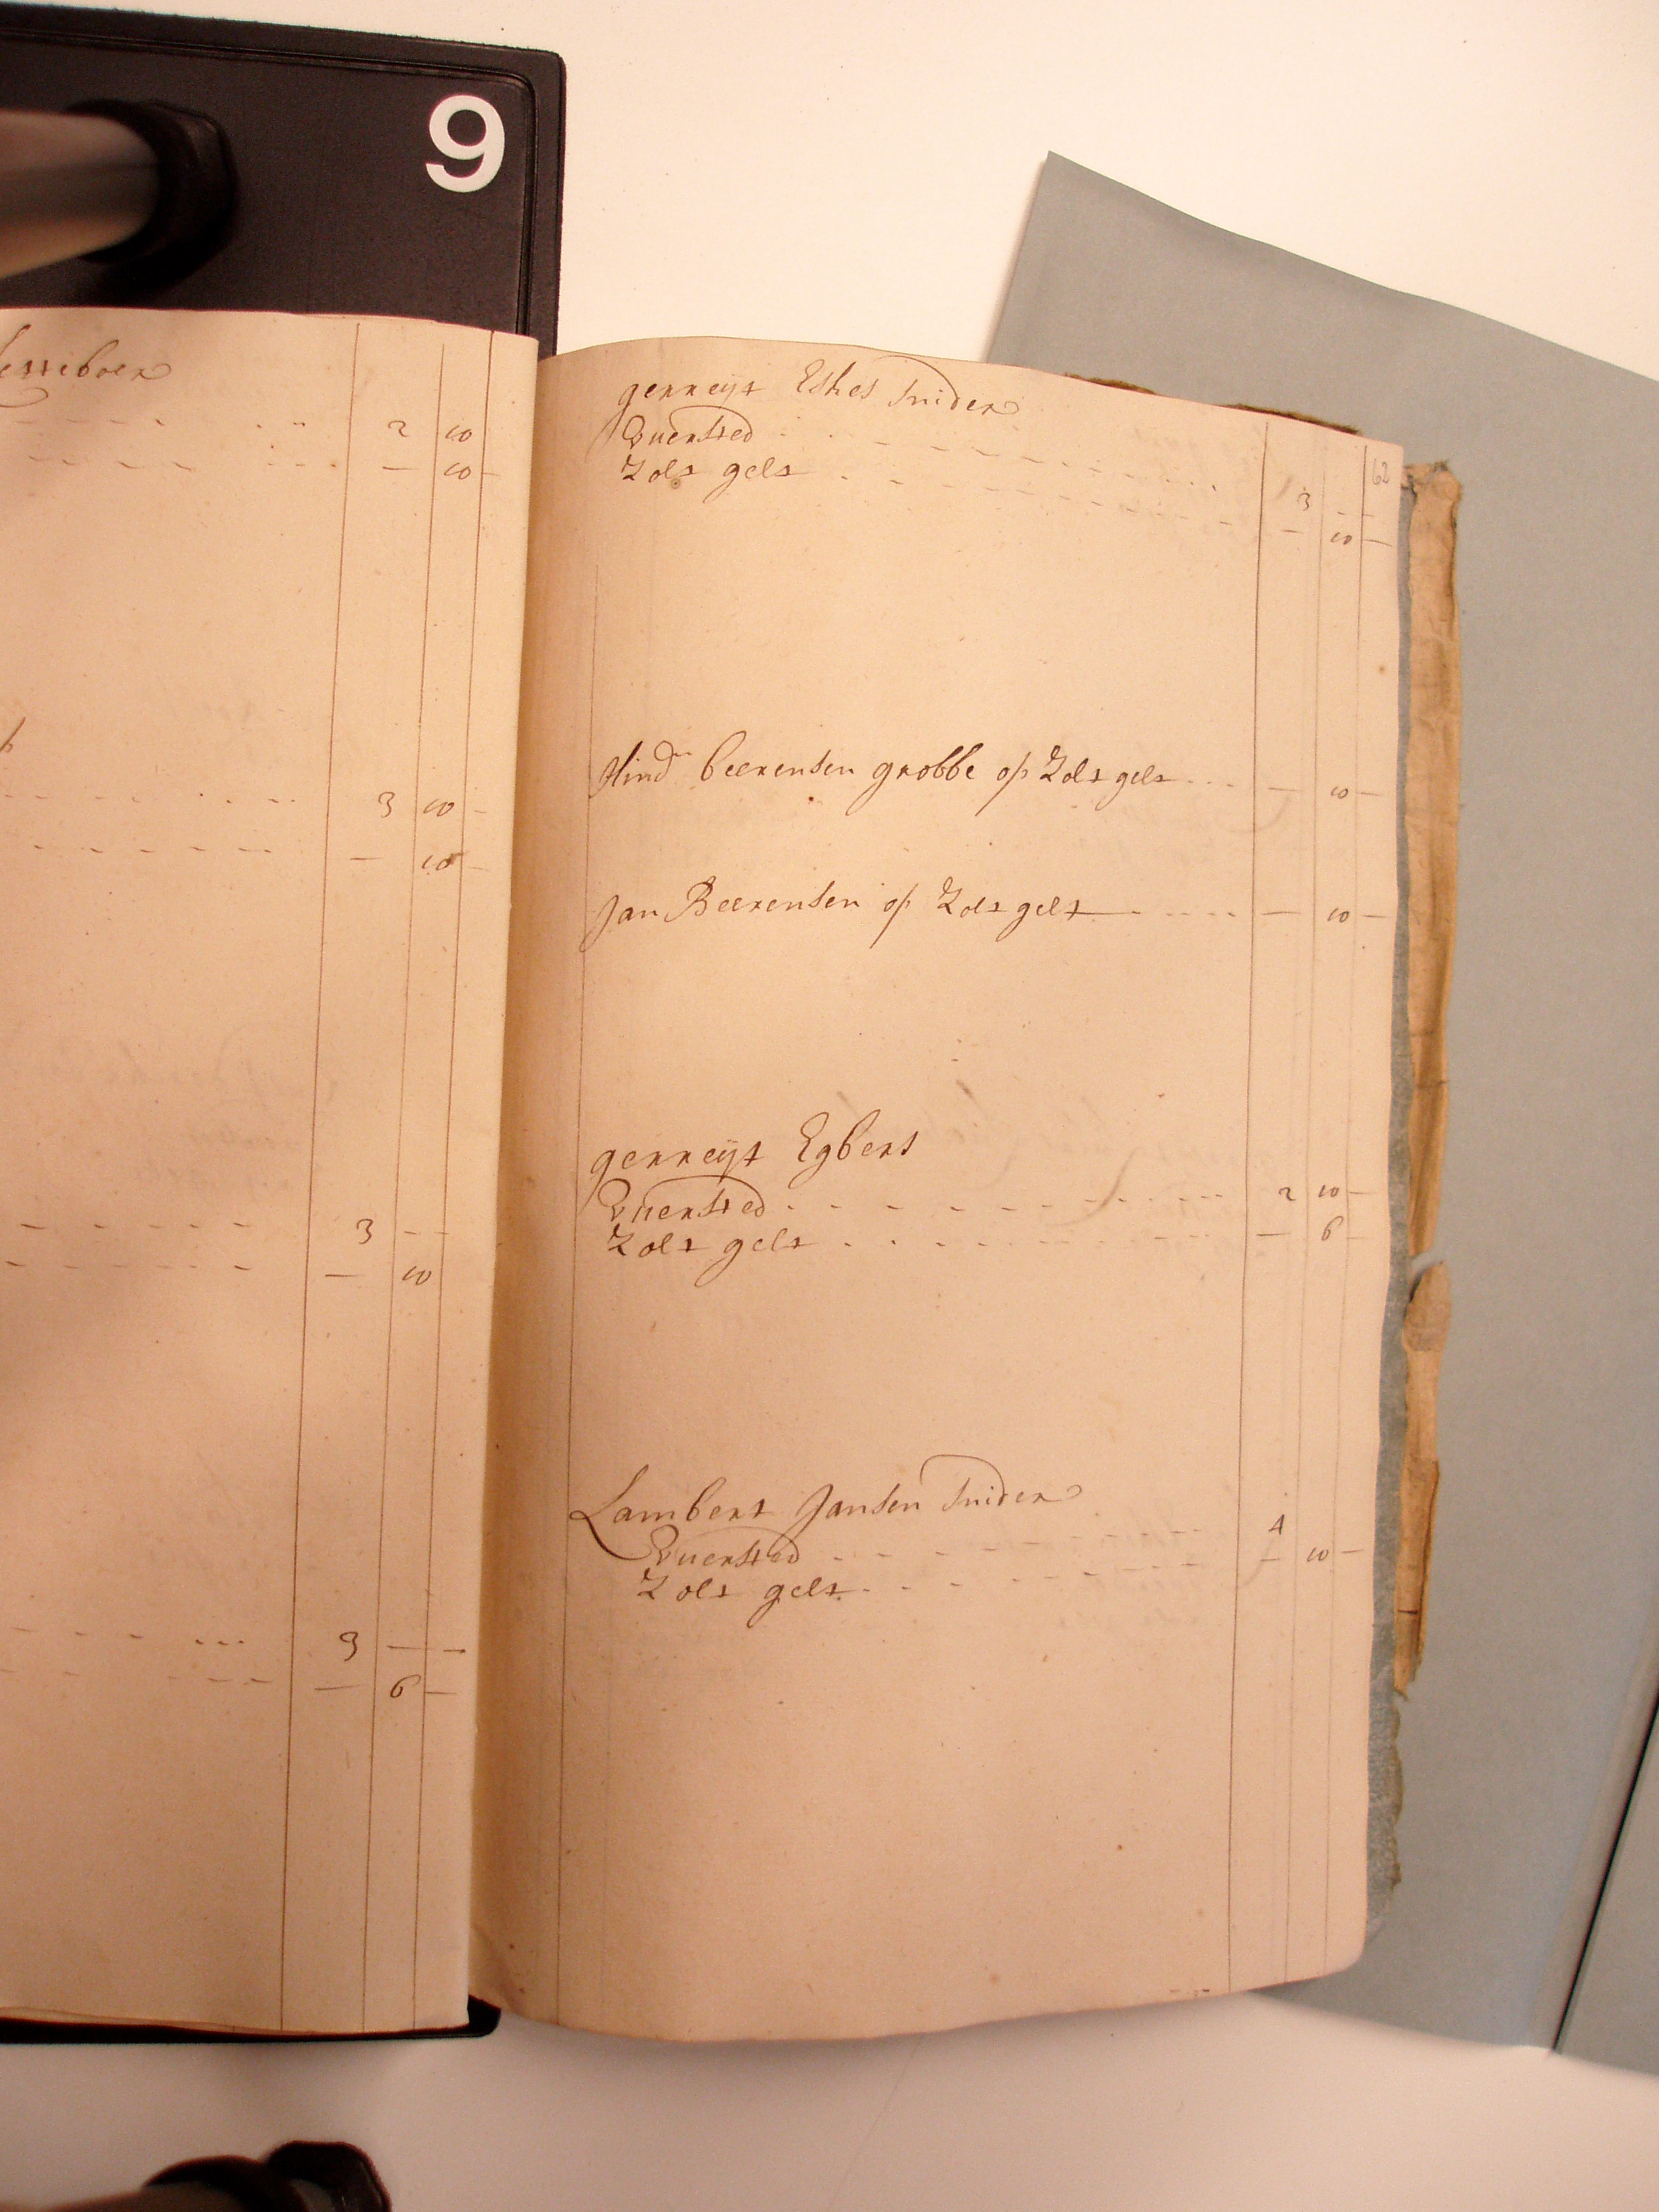 9
2 10
— 10 —
3 10 —
— 10 —
3 - -
— 10
3 — —
— 6 —
62
gerreyt Eshes Snider
Quersted 3 - -
Zolt gelt — 10 —
Hind beerensen grobbe op Zolt gelt — 10 —
Jan Beerensen op Zolt gelt — 10 —
gerreyt Egbert
Quersted 2 10 —
Zolt gelt — 6 -
Lambert Jansen Snider
Quersted 4
Zolt gelt — 10 —